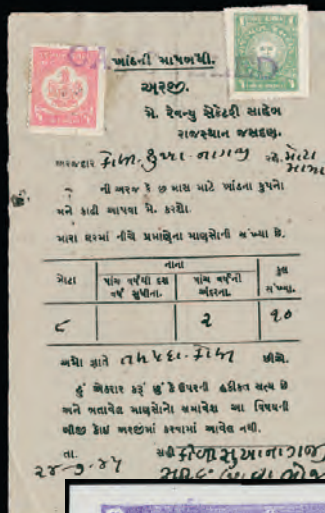 CANCELLED
ખાંડની માપબંધી.
અરજી.
મે. રેવન્યુ સેક્રેટરી સાહેબ
રાજસ્થાન જસદણ.
અરજદાર કોળી સુખા નાગજી રહે. મોટા
ની અરજ કે છ માસ માટે ખાંડના કુપનો
મને કાઢી આપવા મે. કરશો.
મારા ઘરમાં નીચે પ્રમાણેના માણસોની સંખ્યા છે.
મોટા
નાના
પાંચ વર્ષથી દસ વર્ષ સુધીના.
પાંચ વર્ષની અંદરના.
કુલ સંખ્યા.
૮ ૨ ૧૦
અમો જાતે તળપદા કોળી છીએ.
હું એકરાર કરૂં છું કે ઉપરની હકીકત સત્ય છે
અને બતાવેલ માણસોનો સમાવેશ આ વિષયની
બીજી કોઈ અરજીમાં કરવામાં આવેલ નથી.
તા. સહી કોળી સુખા નાગજી
૨૪-૭-૪૫